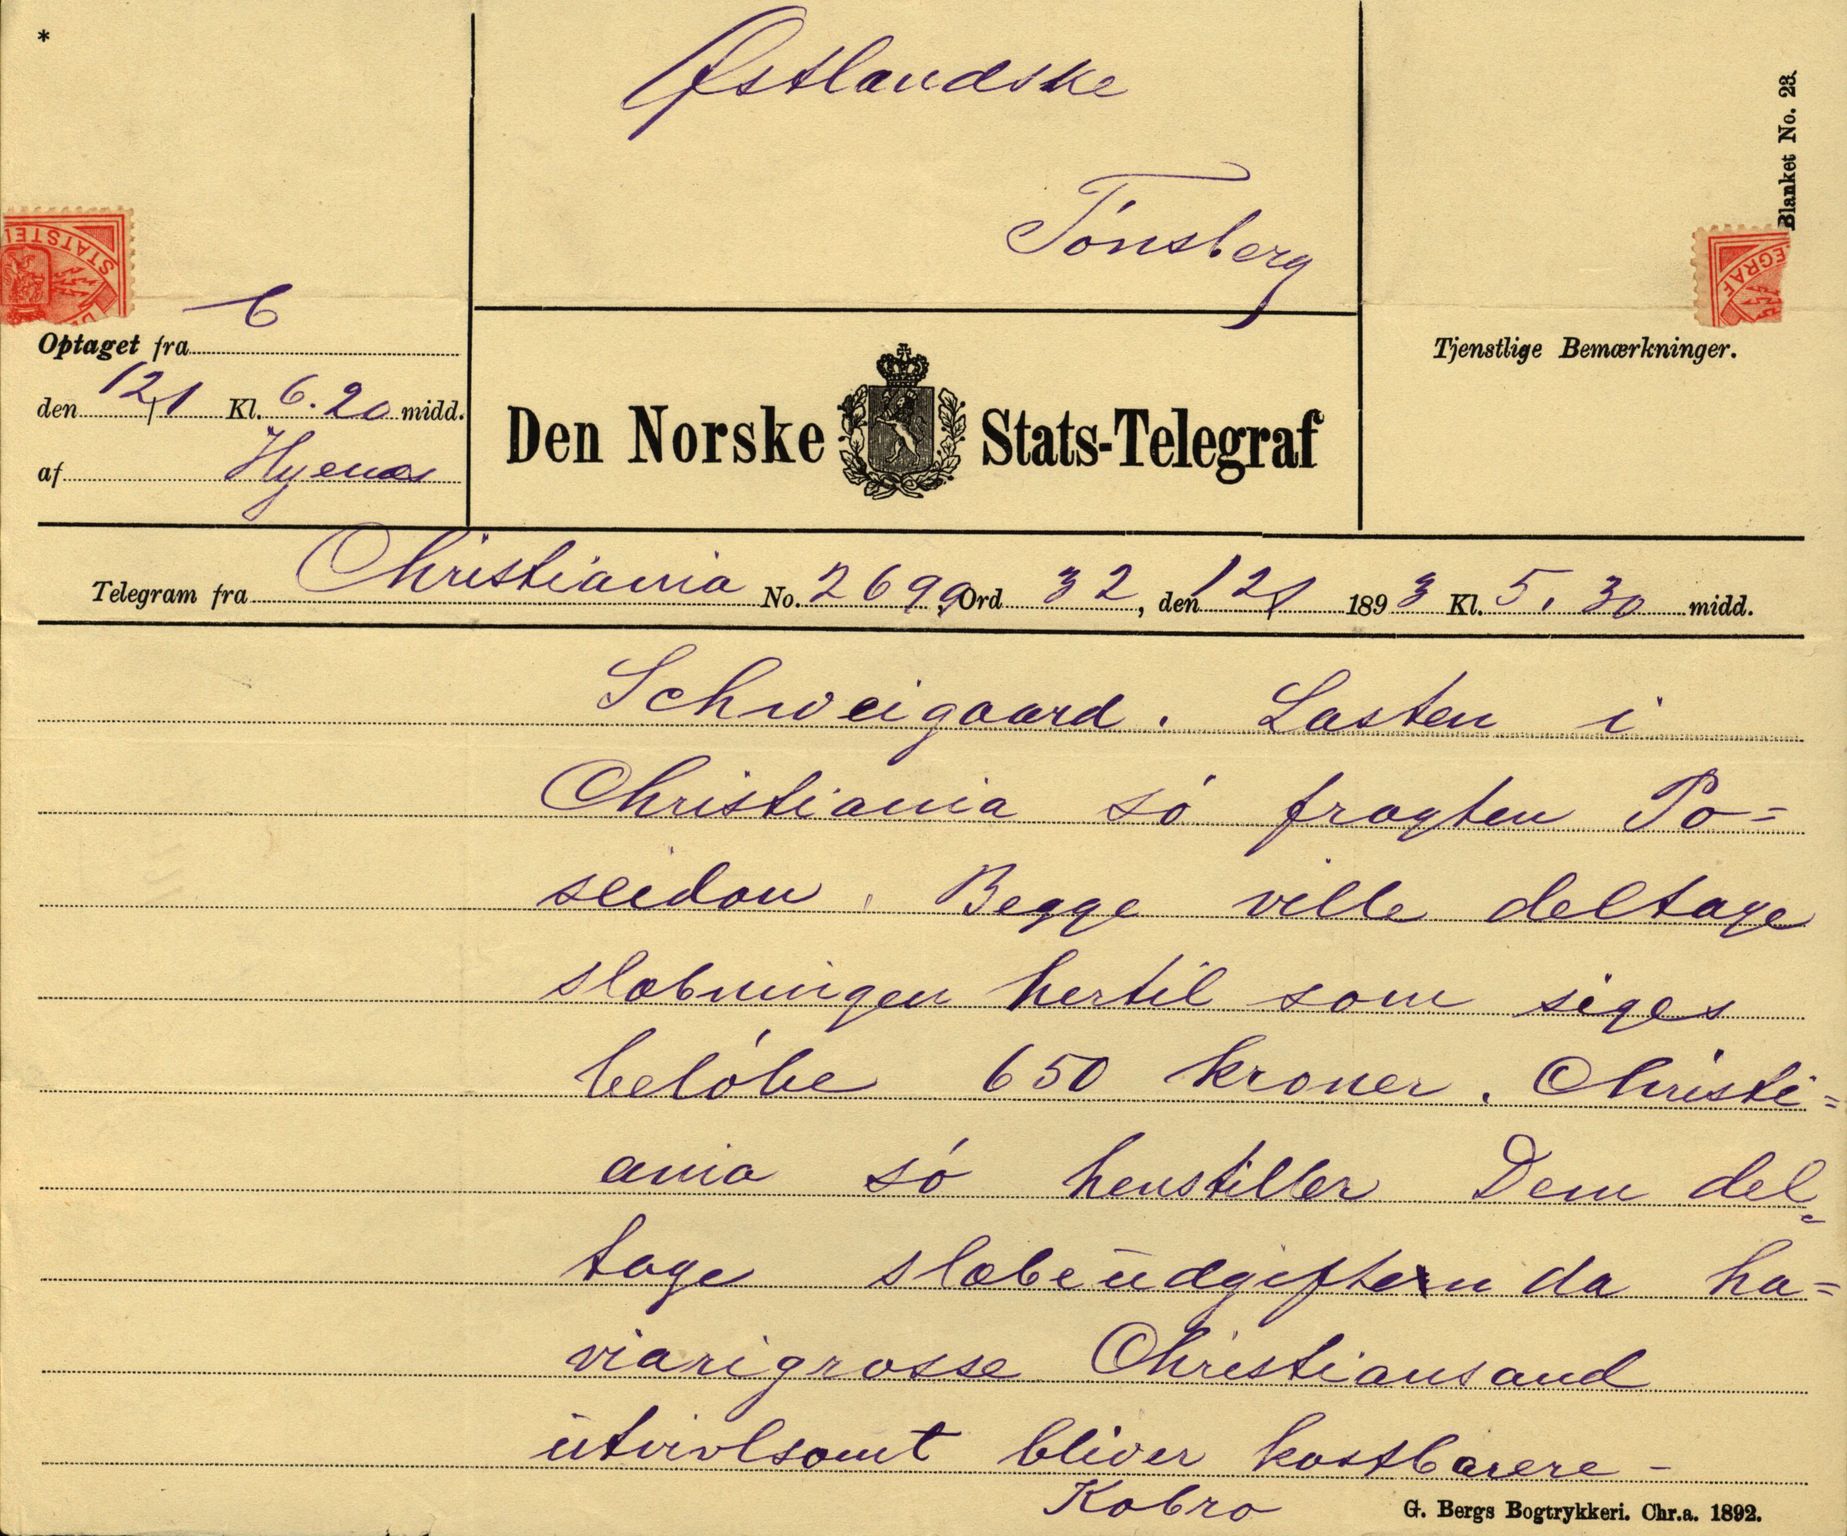 *
Østlandske
Tónsberg
Blanket No. 23.
STATSTEL
EGRAF
Optaget fra C
den 12/1 Kl. 6.20 midd.
af Hyenæs
Den Norske Stats-Telegraf
Tjenstlige Bemærkninger.
Telegram fra Christiania No. 2699, Ord 32, den 12/1 1893 Kl. 5.30 midd.
Schweigaard. Lasten i
Christiania só fragten Po=
seidon. Begge ville deltage
slæbningen hertil som siges
belóbe 650 kroner. Christi=
ania só henstiller Dem del=
tage slæbeudgiften da ha=
viarigrosse Christiansand
utvivlsomt bliver kostbarere -
Kobro
G. Bergs Bogtrykkeri. Chr.a. 1892.